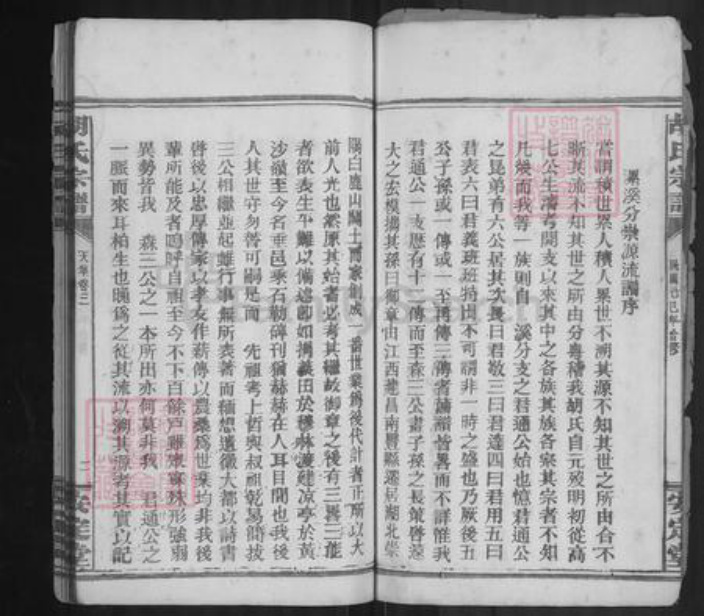 胡氏宗譜
安定堂
溪分塋源流譜序
嘗謂積世累人積人累世不溯其源不知其世之所由合不
晰其流不知其世之所由分粵稽我胡氏自元歿明初從高
七公生濤考開支以來其中之各族其族各宗其宗者不知
凡幾而我等一族則自 溪分支之君通公始也憶君通公
之昆弟有六公居其次長曰君敬三曰君達四曰君用五曰
君表六曰君義班班特出不可謂非一時之盛也乃厥後五
公子孫或一傳或一至再傳三傳者譜牒皆畧而不詳惟我
君通公一支歷有十一傳而至森三公畫子孫之長策啓
大之宏模攜其孫曰御章由江西建昌南豐縣遷居湖北崇
陽白鹿山闢土而家創成一番世業為後代計者正所以大
前人光也然原其始者必考其繼故御章之後有三 三能
者欲表生平難以備述卽如捐義田於 林渡建凉亭於黃
沙嶺至今名垂邑乘石勒碑刊猶赫赫在人耳目間也我後
人其世守勿替可嗣是而 先祖考上哲與叔祖乾易簡技
三公相繼並起雖行事無所表著而緬想遺徽大都以詩書
啓後以忠厚傳家以孝友作薪傳以農桑爲世業均非我後
輩所能及者嗚呼自祖至今不下百餘戶雖衆寡殊形強弱
異勢皆我 森三公之一本所出亦何莫非我 君通公之
一脈而來耳柏生也晚爲之從其流以溯其源考其實以記
胡氏宗譜
天 卷二
二
安定堂